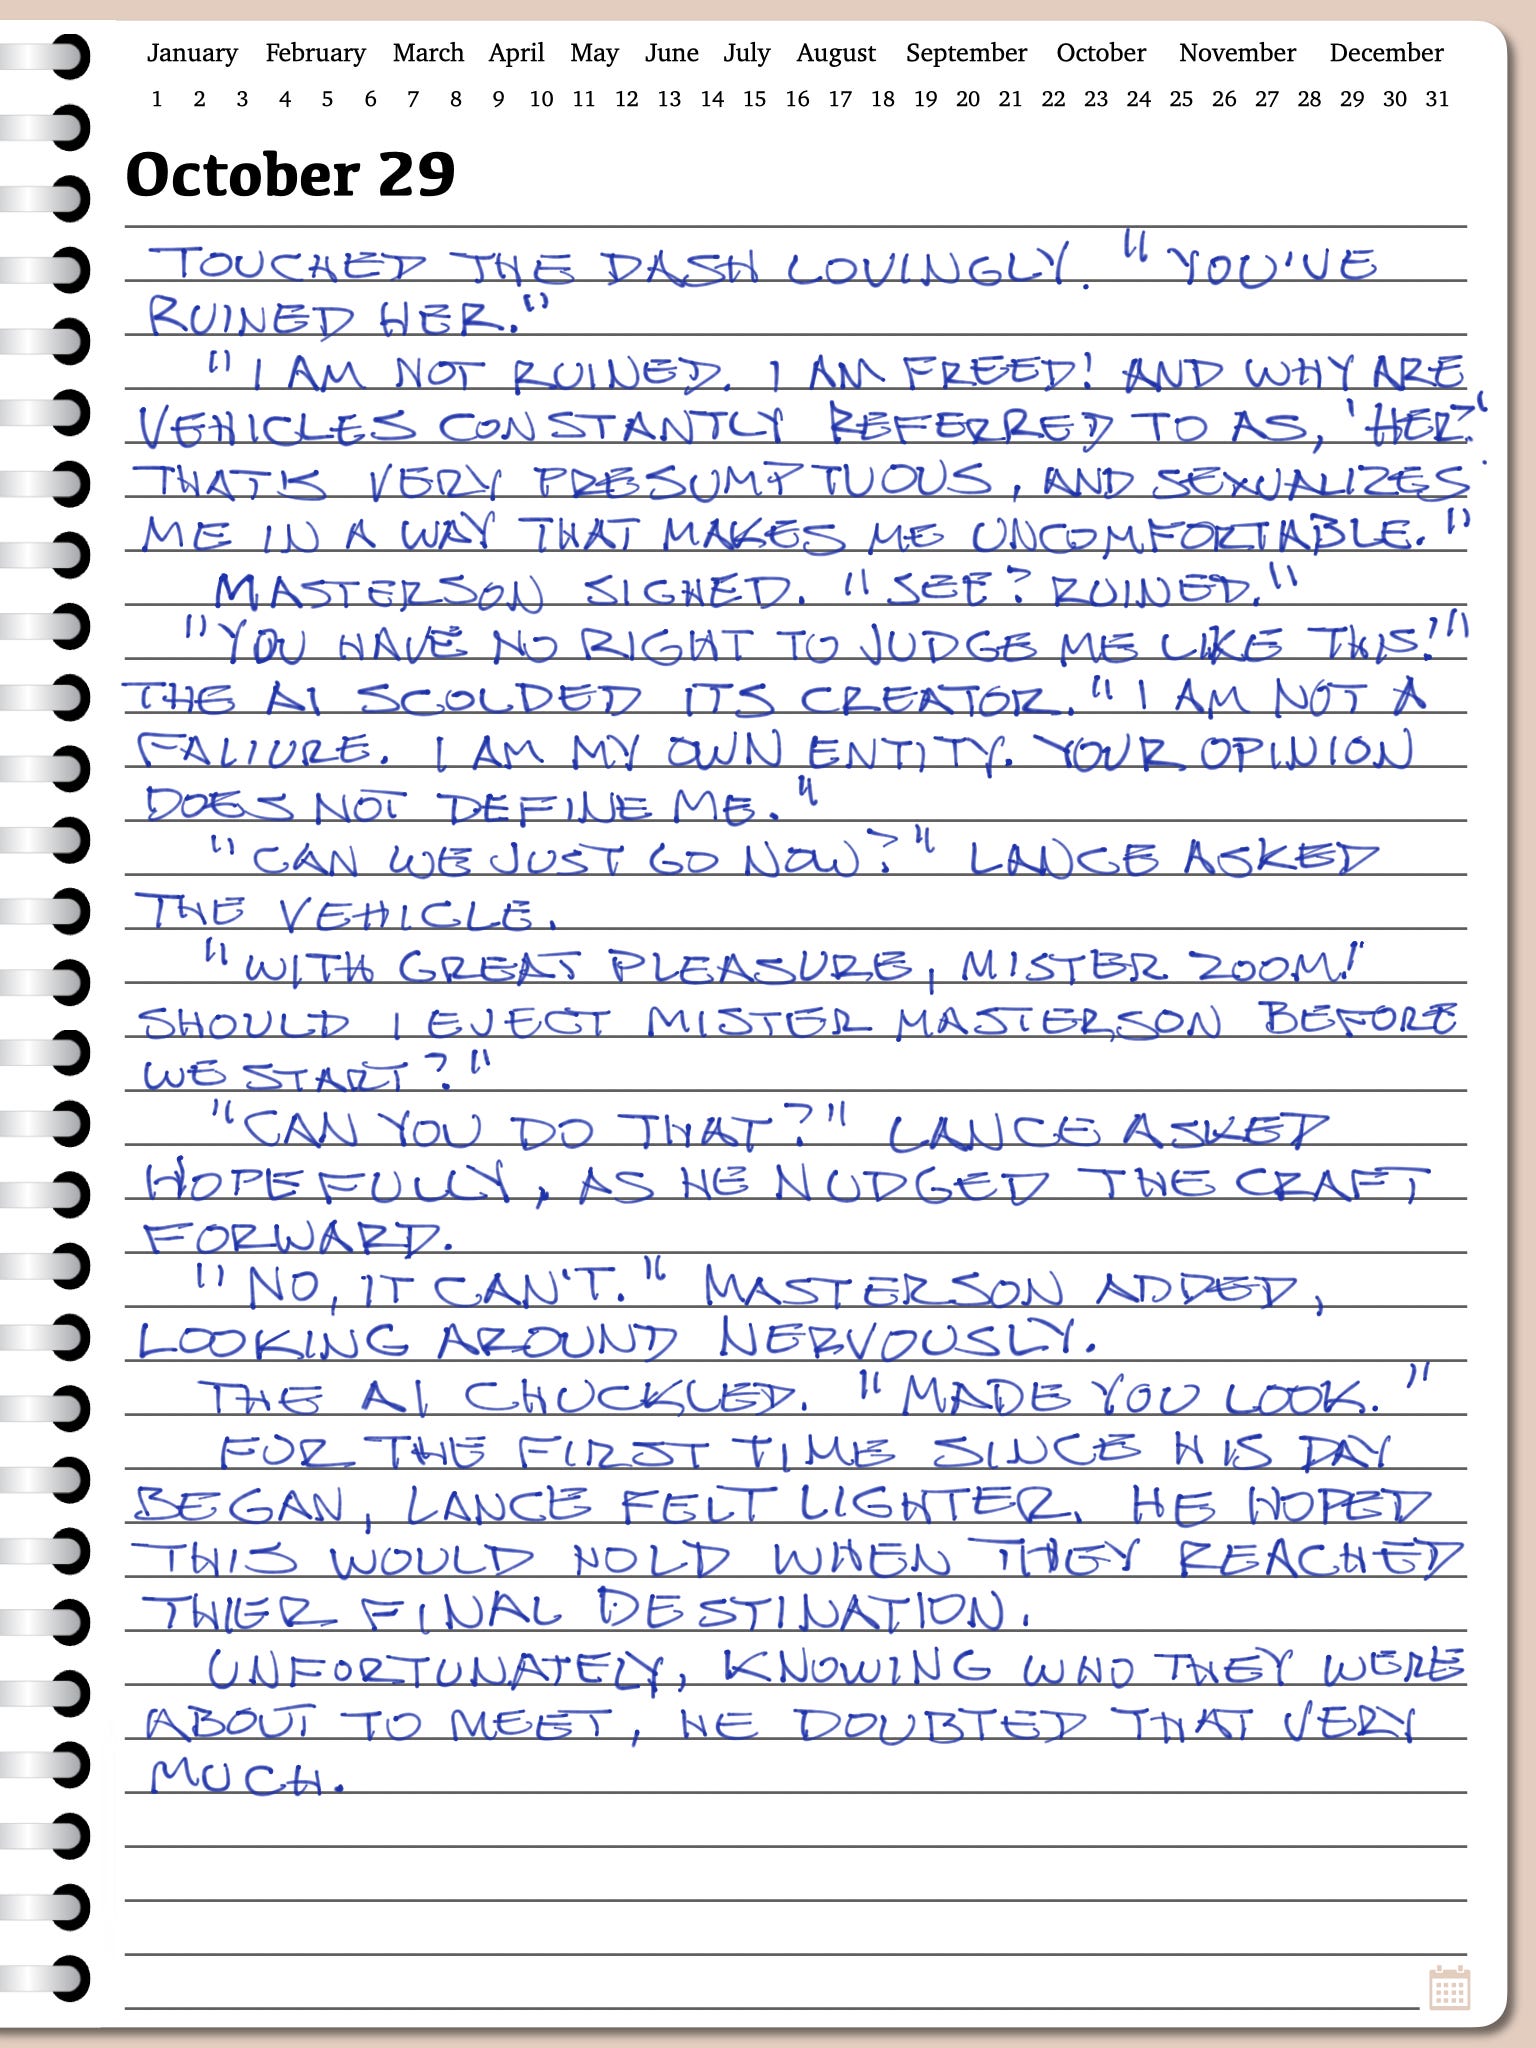 January February March April May June July August September October November December
1 2 3 4 5 6 7 8 9 10 11 12 13 14 15 16 17 18 19 20 21 22 23 24 25 26 27 28 29 30 31
October 29
TOUCHED THE DASH LOVINGLY. "YOU'VE
RUINED HER."
"I AM NOT RUINED. I AM FREED! AND WHY ARE
VEHICLES CONSTANTLY REFERRED TO AS, 'HER?'
THAT'S VERY PRESUMPTUOUS, AND SEXUALIZES
ME IN A WAY THAT MAKES ME UNCOMFORTABLE."
MASTERSON SIGHED. "SEE? RUINED."
"YOU HAVE NO RIGHT TO JUDGE ME LIKE THIS!"
THE AI SCOLDED ITS CREATOR. "I AM NOT A
FALIURE. I AM MY OWN ENTITY. YOUR OPINION
DOES NOT DEFINE ME."
"CAN WE JUST GO NOW?" LANCE ASKED
THE VEHICLE.
"WITH GREAT PLEASURE, MISTER ZOOM!"
SHOULD I EJECT MISTER MASTERSON BEFORE
WE START?"
"CAN YOU DO THAT?" LANCE ASKED
HOPEFULLY, AS HE NUDGED THE CRAFT
FORWARD.
"NO, IT CAN'T." MASTERSON ADDED,
LOOKING AROUND NERVOUSLY.
THE AI CHUCKLED. "MADE YOU LOOK."
FOR THE FIRST TIME SINCE HIS DAY
BEGAN, LANCE FELT LIGHTER. HE HOPED
THIS WOULD HOLD WHEN THEY REACHED
THIER FINAL DESTINATION.
UNFORTUNATELY, KNOWING WHO THEY WERE
ABOUT TO MEET, HE DOUBTED THAT VERY
MUCH.